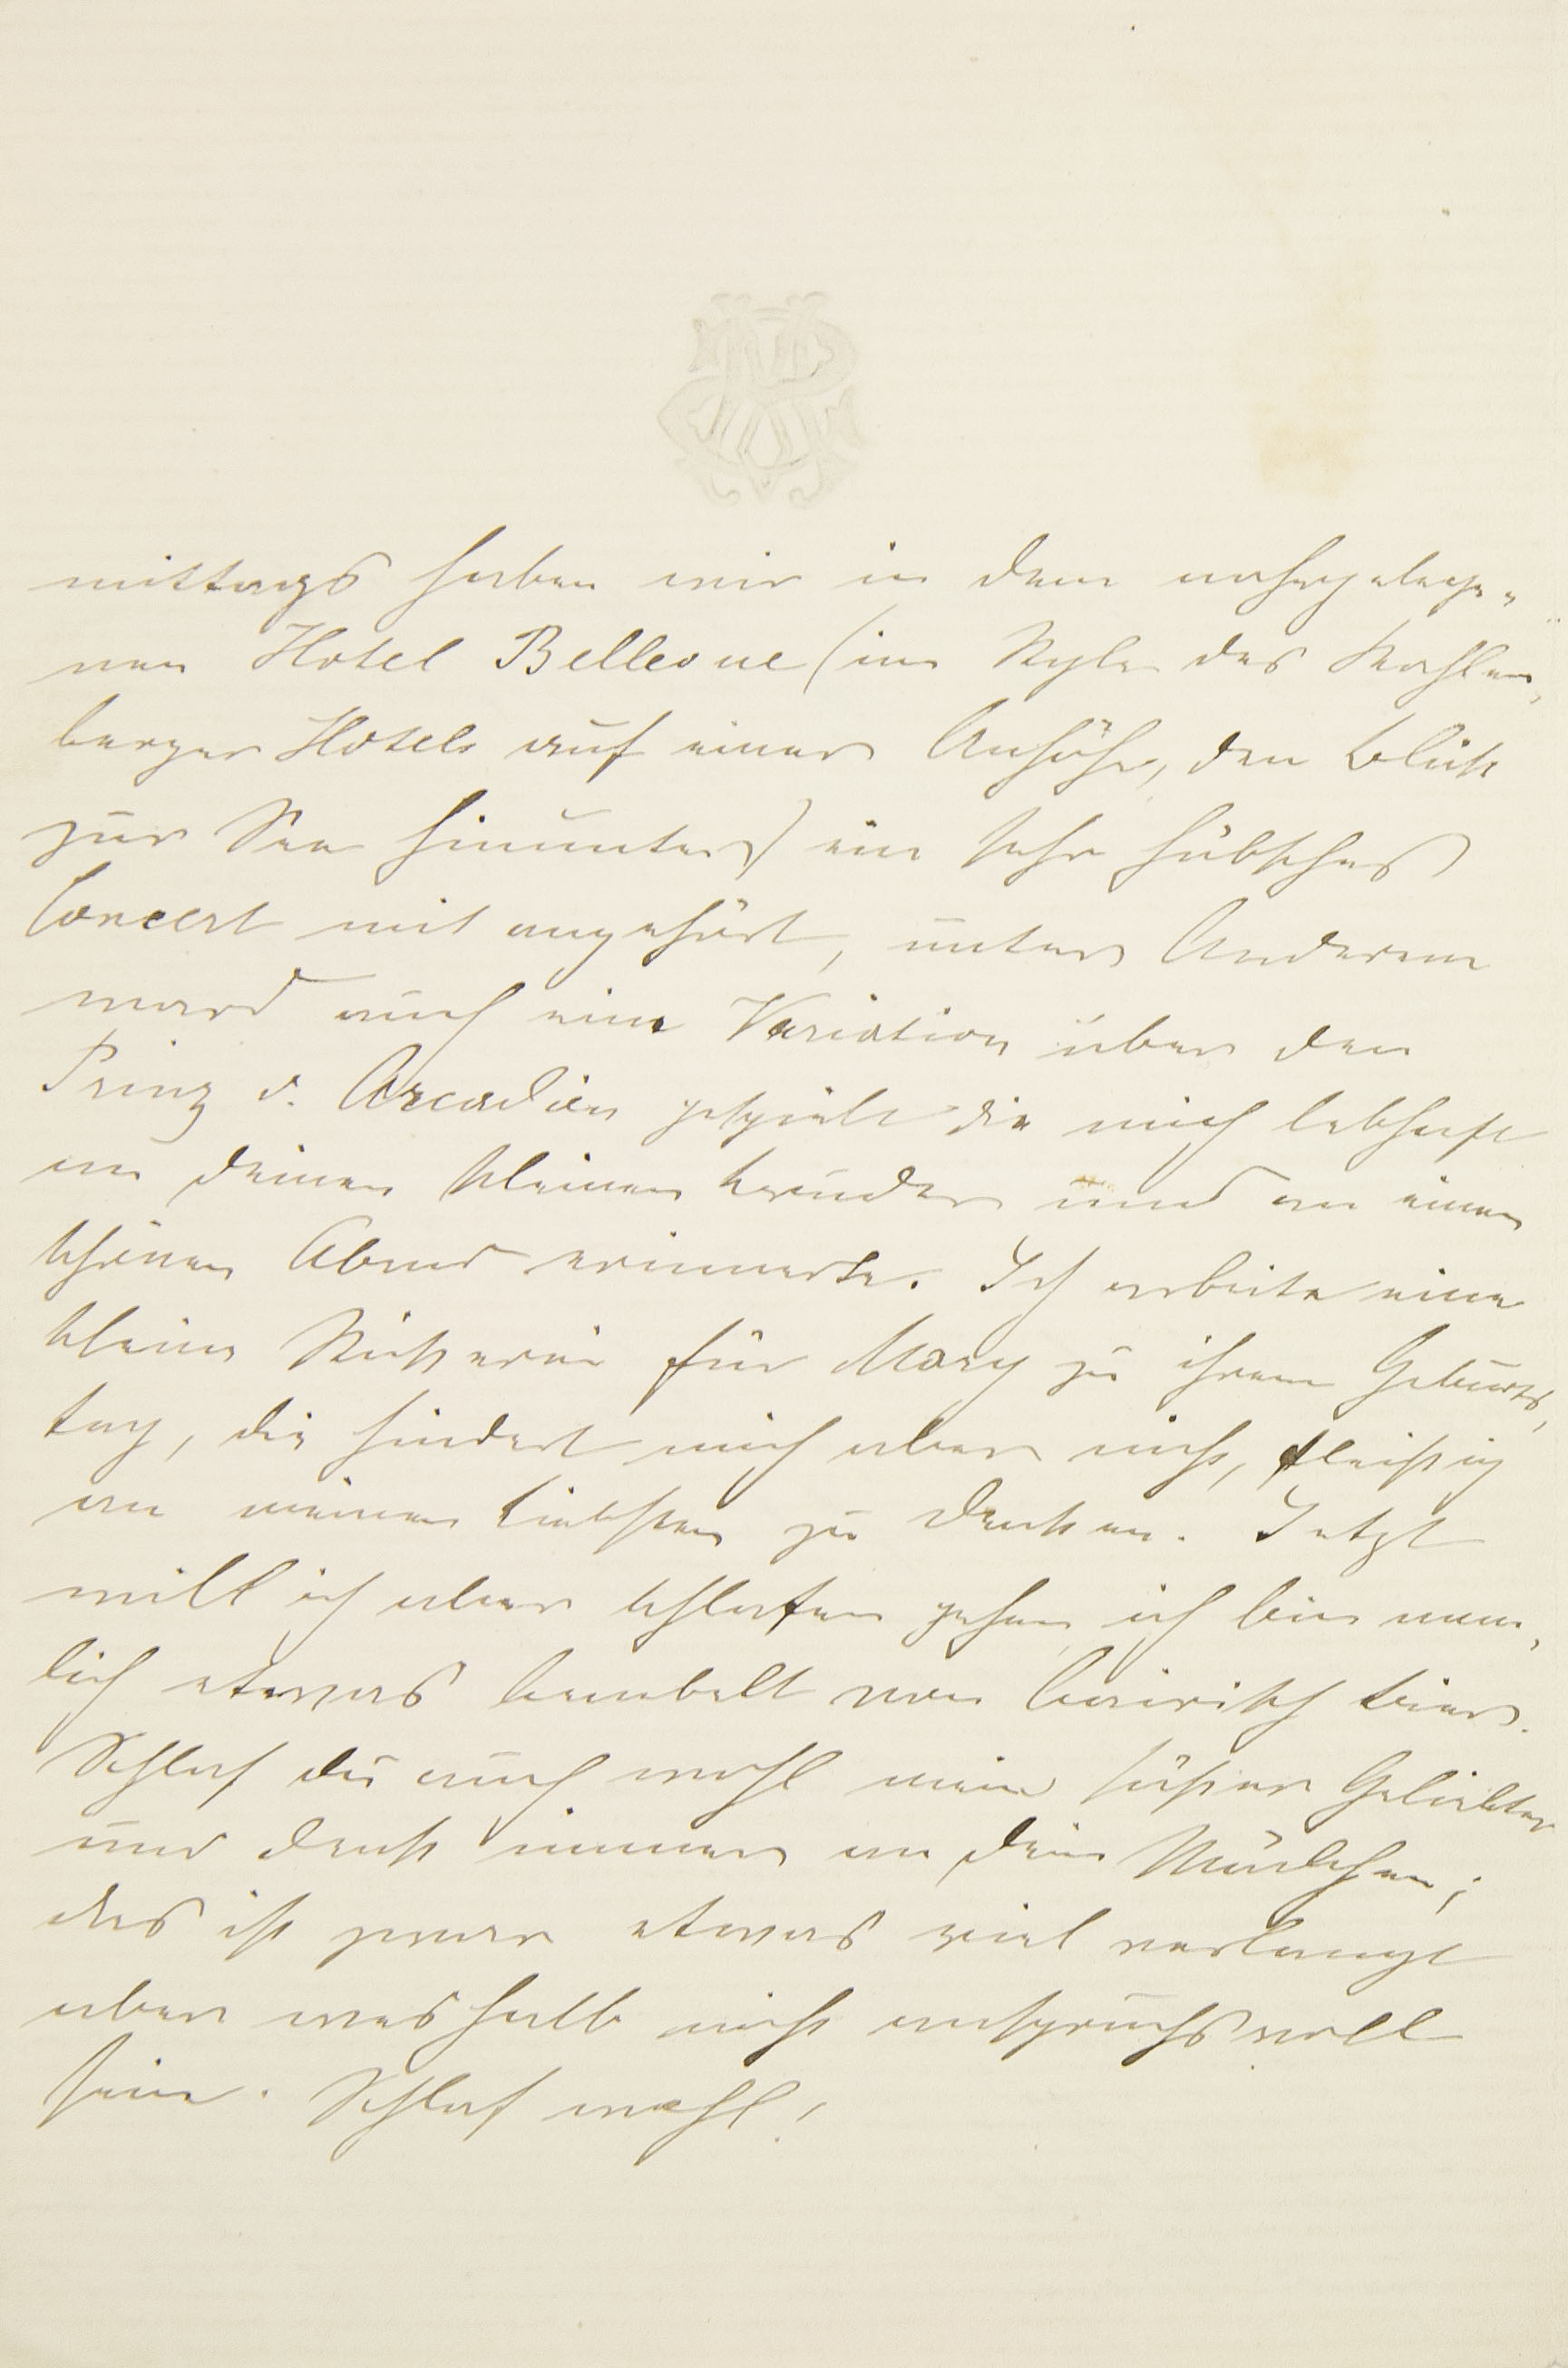 mittags haben wir in dem nahegelege-
nen Hotel Bellevue (im Style des Kahlen-
berger Hotels auf einer Anhöhe, den Blick
zur See hinunter) ein sehr hübsches
Concert mit angehört, unter Anderem
ward auch eine Variation über den
Prinz v. Arcadien gespielt die mich lebhaft
an deinen kleinen Bruder und an einen
schönen Abend erinnerte. Ich arbeite eine
kleine Stickerei für Mary zu ihrem Geburts-
tag, die hindert mich aber nicht, fleißig
an meinen Liebsten zu denken. Jetzt
will ich aber schlafen gehen, ich bin näm-
lich etwas benebelt von bairisch Bier.
Schlaf du auch wohl mein süßer Geliebter
und denk immer an dein Mädchen;
das ist zwar etwas viel verlangt
aber weshalb nicht anspruchsvoll
sein. Schlaf wohl!